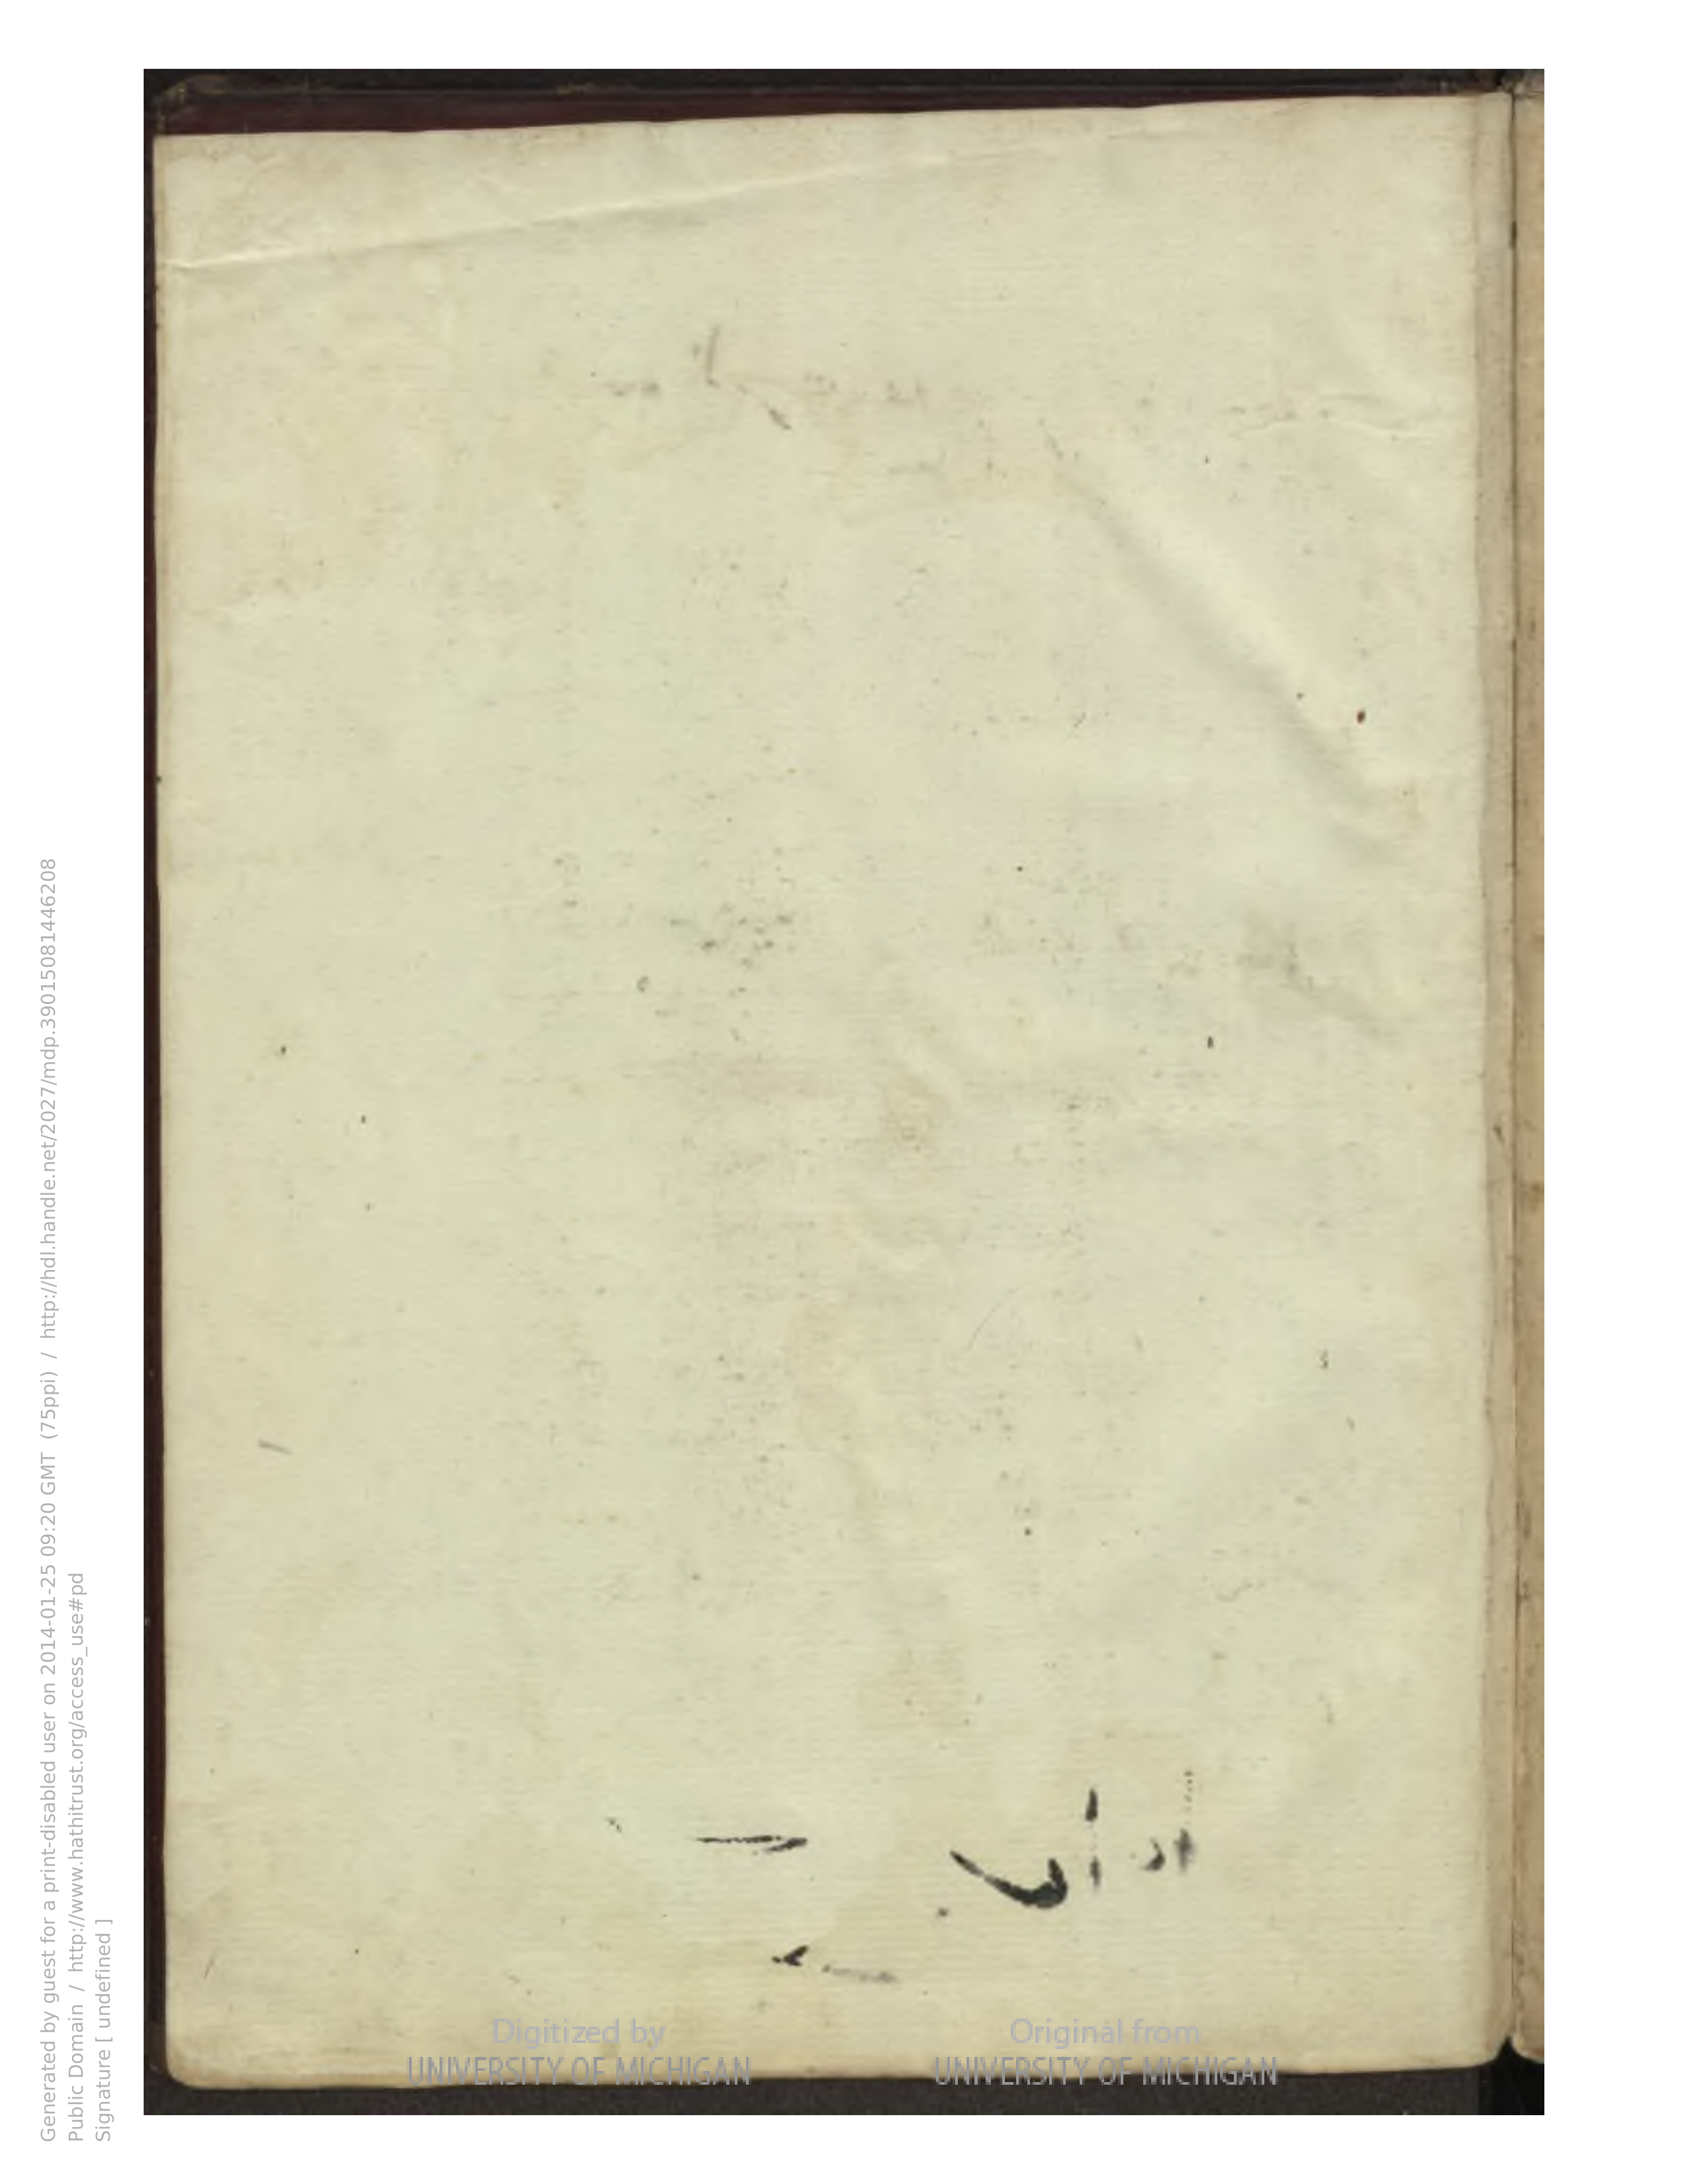 Generated by guest for a print-disabled user on 2014-01-25 09:20 GMT (75ppi) / http://hdl.handle.net/2027/mdp.39015081446208
Public Domain / http://www.hathitrust.org/access_use#pd
Signature [ undefined ]
Digitized by
UNIVERSITY OF MICHIGAN
Original from
UNIVERSITY OF MICHIGAN